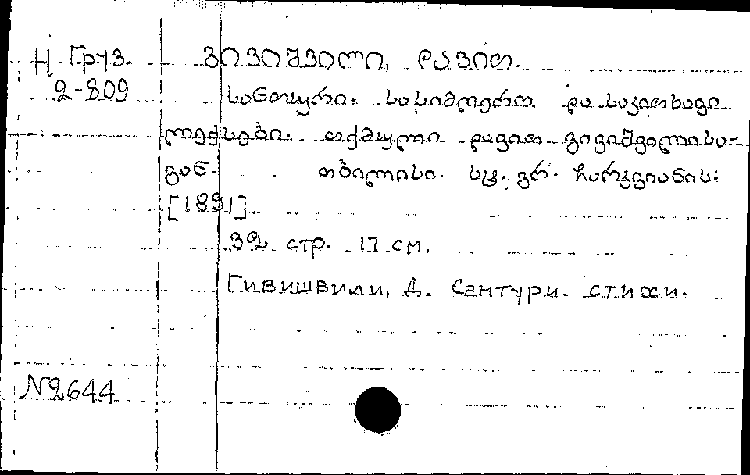 Н Груз.
2-809
გივიშვილი, დავით.
სანთური. სასიმღერო და საკითხავი
ლექსები. თქმული დავით გივიშვილისა-
გან. თბილისი. სტ. გრ. ჩარკვიანის.
[1891]
32 стр. 17 см.
Гивишвили, Д. Сантури. стихи.
N2644